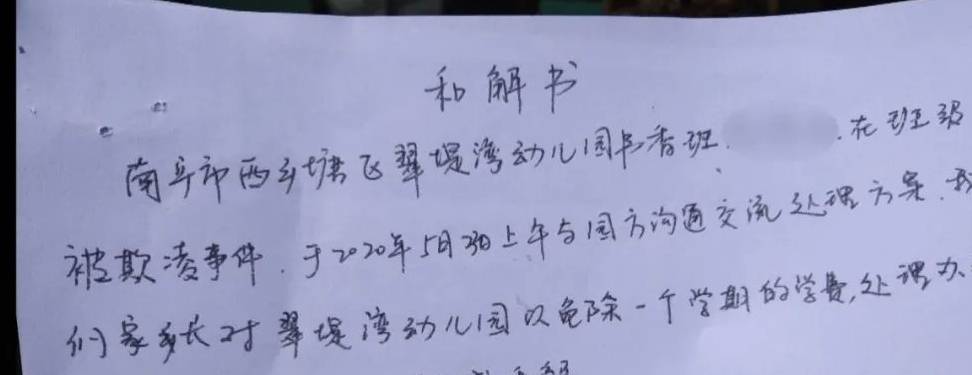 和解书
南宁市西乡塘区翠堤湾幼儿园书香班 在班级
被欺凌事件.于2020年5月23日上午与园方沟通交流处理方案.我
们家长对翠堤湾幼儿园以免除一个学期的学费,处理办